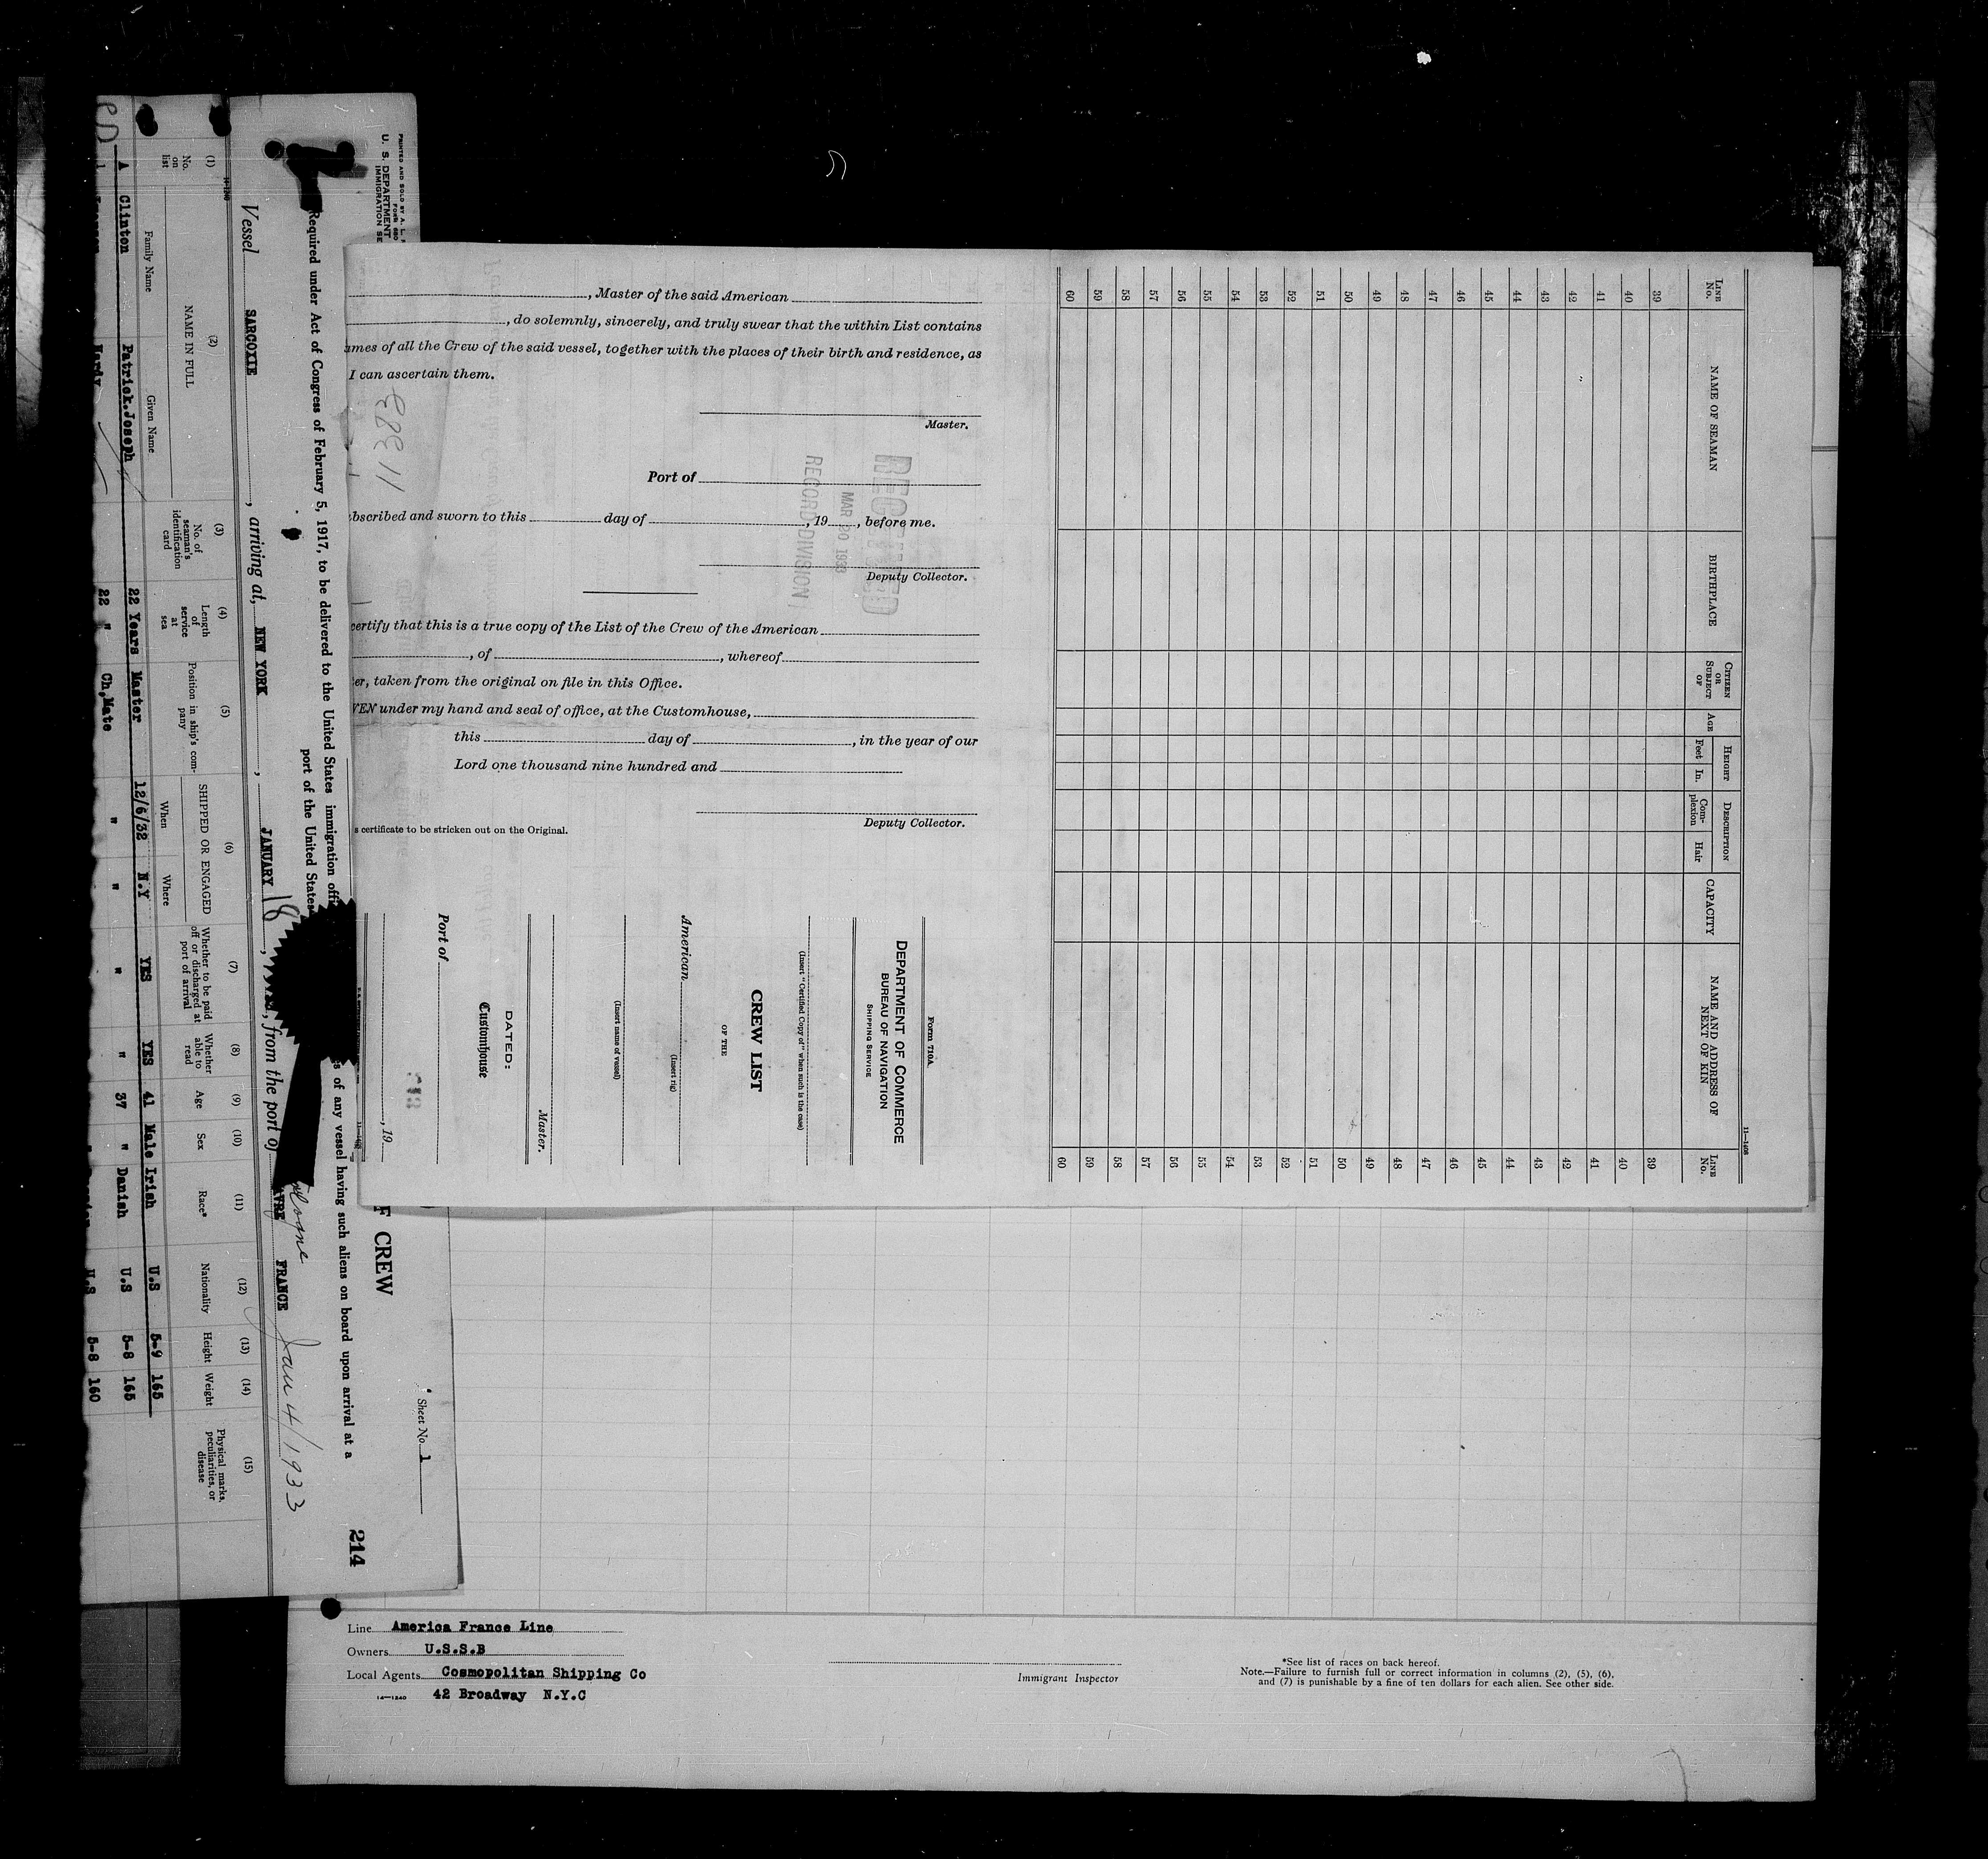 PRINTED AND SOLD BY A. L.
Form 680
U. S. DEPARTMENT
IMMIGRATION SE
F CREW
Sheet No. 1
214
Required under Act of Congress of February 5, 1917, to be delivered to the United States immigration offi
s of any vessel having such aliens on board upon arrival at a
port of the United States
Vessel SARCOXIE, arriving at, NEW YORK, JANUARY 18, from the port of
FRANCE Jan 4/1933
14-1240
(1) (2) (3) (4) (5) (6) (7) (8) (9) (10) (11) (12) (13) (14) (15)
No. on list
NAME IN FULL
Family Name Given Name
No. of seaman's identification card
Length of service at sea
Position in ship's company
SHIPPED OR ENGAGED
When Where
Whether to be paid off or discharged at port of arrival
Whether able to read
Age
Sex
Race*
Nationality
Height
Weight
Physical marks, peculiarities, or disease
A Clinton Patrick.Joseph 22 Years Master 12/6/32 N.Y YES YES 41 Male Irish U.S 5-9 165
1 Hardy 22 " Ch,Mate " " " " 37 " Danish U.S 5-8 165
U.S 5-8 160
, Master of the said American
, do solemnly, sincerely, and truly swear that the within List contains
ames of all the Crew of the said vessel, together with the places of their birth and residence, as
I can ascertain them.
Master.
11383
Port of
RECEIVED
MAR 20 1933
RECORD DIVISION
bscribed and sworn to this day of , 19 , before me.
Deputy Collector.
certify that this is a true copy of the List of the Crew of the American
, of , whereof
er, taken from the original on file in this Office.
VEN under my hand and seal of office, at the Customhouse,
this day of , in the year of our
Lord one thousand nine hundred and
Deputy Collector.
s certificate to be stricken out on the Original.
Form 710A.
DEPARTMENT OF COMMERCE
BUREAU OF NAVIGATION
SHIPPING SERVICE
(Insert "Certified Copy of" when such is the case)
CREW LIST
OF THE
American
(Insert rig)
(Insert name of vessel)
Master.
DATED:
Customhouse
Port of
, 19
11-1408
LINE No.
NAME OF SEAMAN
BIRTHPLACE
CITIZEN OR SUBJECT OF
AGE
HEIGHT
Feet In.
DESCRIPTION
Complexion Hair
CAPACITY
NAME AND ADDRESS OF NEXT OF KIN
LINE No.
39 39
40 40
41 41
42 42
43 43
44 44
45 45
46 46
47 47
48 48
49 49
50 50
51 51
52 52
53 53
54 54
55 55
56 56
57 57
58 58
59 59
60 60
Line America France Line
Owners U.S.S.B
Local Agents Cosmopolitan Shipping Co
14-1240 42 Broadway N.Y.C
Immigrant Inspector
*See list of races on back hereof.
Note.—Failure to furnish full or correct information in columns (2), (5), (6),
and (7) is punishable by a fine of ten dollars for each alien. See other side.